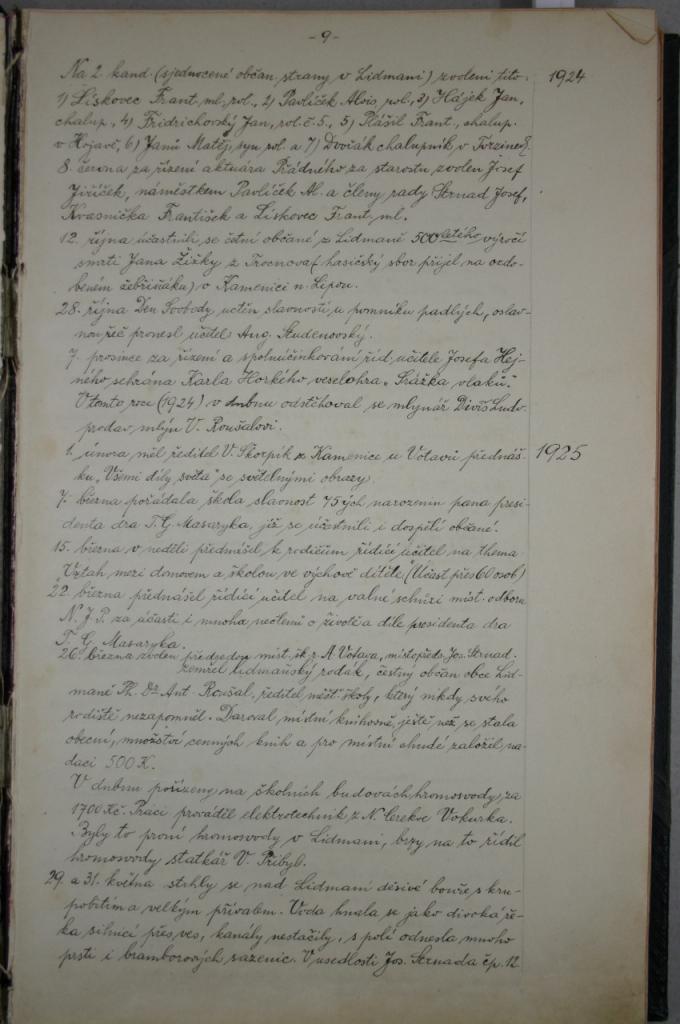 - 9 -
Na 2 kand. (sjednocené občan. strany v Lidmani) zvoleni tito: 1924
1) Liskovec Frant. ml., rol., 2) Pavlíček Alois, rol., 3) Hájek Jan,
chalup., 4) Fridrichovský Jan, rol. č. 5., 5) Plášil Frant., chalup.
v Hojavě, 6) Janů Matěj, syn rol. a 7) Dvořák chalupník v
8. června za řízení aktuára Přádného za starostu zvolen Josef
Jiříček, náměstkem Pavlíček Al. a členy rady Strnad Josef,
Kvasnička František a Liskovec Frant. ml.
12. října účastnili se četní občané z Lidmaně 500letého výročí
smrti Jana Žižky z Trocnova (hasičský sbor přijel na ozdo-
beném žebřiňáku) v Kamenici n. Lipou.
28. října Den Svobody uctěn slavností u pomníku padlých, oslav-
nou řeč pronesl učitel Aug. Studenovský.
7. prosince za řízení a spoluúčinkování říd. učitele Josefa Hej-
ného sehrána Karla Horkého veselohra „Srážka vlaků".
V tomto roce (1924) v dubnu odstěhoval se mlynář Diviš Ludv.
prodav mlýn V. Roušalovi.
1. února měl ředitel V. Škorpík z Kamenice u Votavů přednáš- 1925
ku „Všemi díly světa" se světelnými obrazy.
7. března pořádala škola slavnost 75tých narozenin pana presi-
denta dra T. G. Masaryka, jíž se účastnili i dospělí občané.
15. března v neděli přednášel k rodičům řídící učitel na thema
„Vztah mezi domovem a školou ve výchově dítěte" (Účast přes 60 osob)
22. března přednášel řídící učitel na valné schůzi míst. odboru
N. J. P. za účasti i mnoha nečlenů o životě a díle presidenta dra
T. G. Masaryka.
26. března zvolen předsedou míst. šk. r. A. Votava, místopředs. Jos. Strnad.
Zemřel lidmaňský rodák, čestný občan obce Lid-
maně Ph. Dr. Ant. Roušal, ředitel měšť. školy, který nikdy svého
rodiště nezapomněl. Daroval místní knihovně, ještě než se stala
obecní, množství cenných knih a pro místní chudé založil na-
daci 500 K.
V dubnu pořízeny na školních budovách hromosvody za
1700 Kč. Práci prováděl elektrotechnik z N. Cerekve Vokurka.
Byly to první hromosvody v Lidmani, brzy na to zřídil
hromosvody statkář V. Přibyl.
29. a 31. května strhly se nad Lidmaní děsivé bouře s kru-
pobitím a velkým přívalem. Voda hnala se jako divoká ře-
ka silnicí přes ves, kanály nestačily, s polí odnesla mnoho
prsti i bramborových sazenic. V usedlosti Jos. Strnada čp. 12